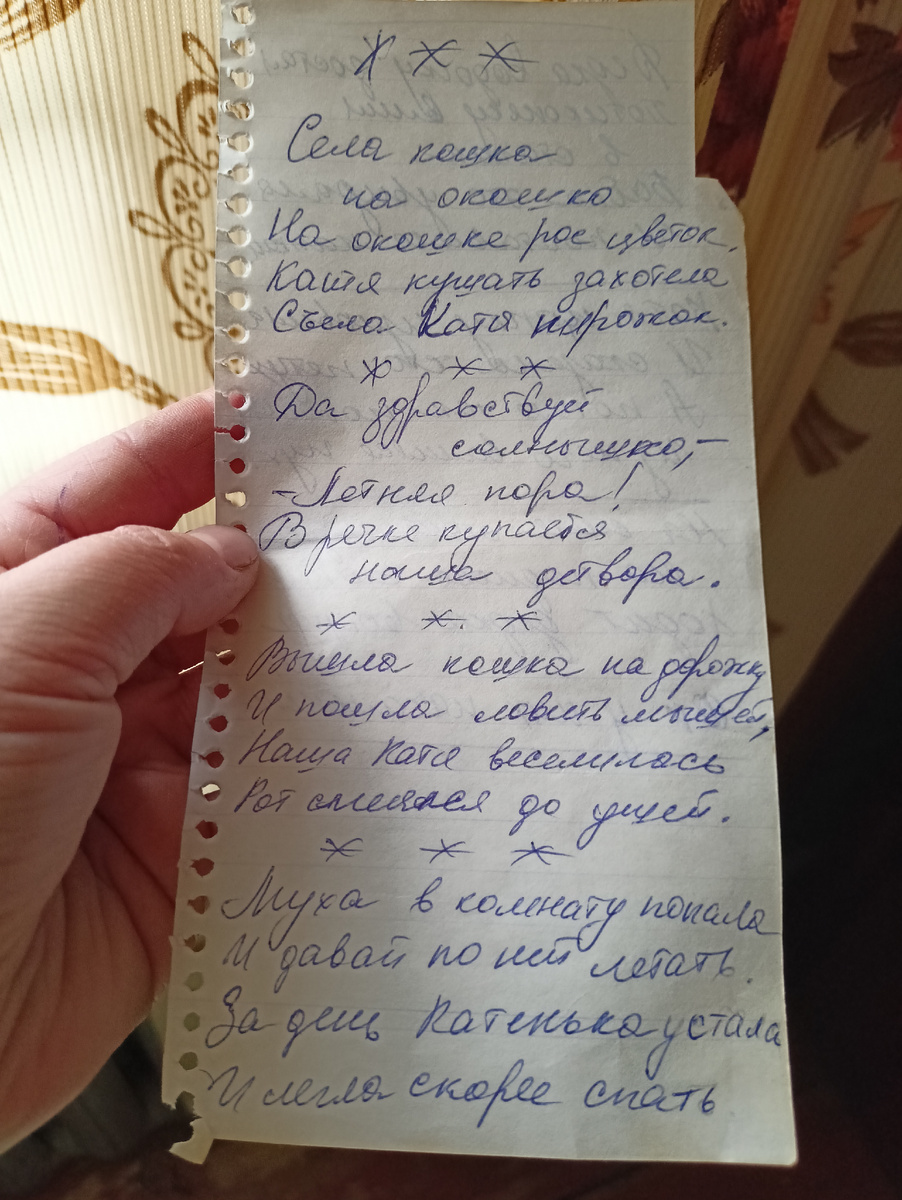 * * *
Села кошка
на окошко
На окошке рос цветок,
Катя кушать захотела
Съела Катя пирожок.
* * *
Да здравствуй
солнышко, –
– Летняя пора!
В речке купается
наша детвора.
* * *
Вышла кошка на дорожку
И пошла ловить мышей,
Наша Катя веселилась
Рот смеялся до ушей.
* * *
Муха в комнату попала
И давай по ней летать.
За день Катенька устала
И легла скорее спать